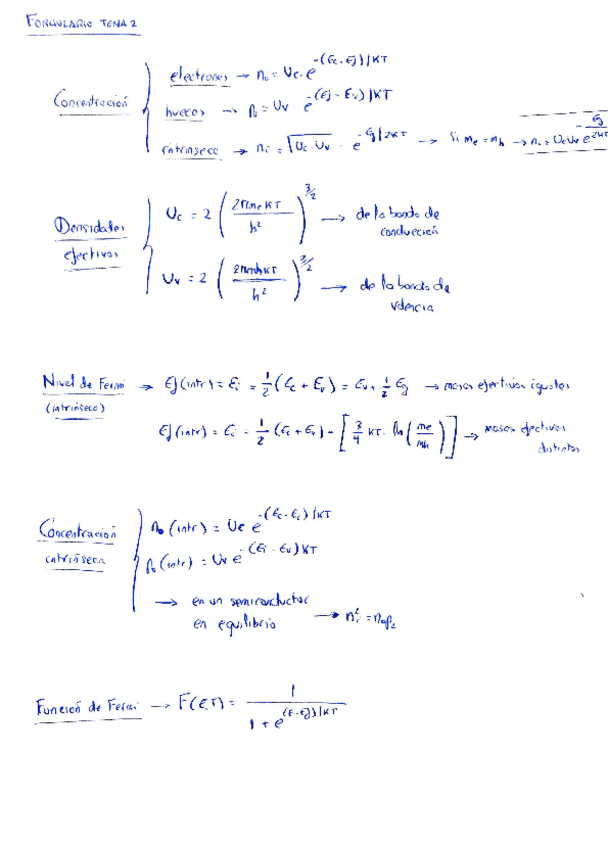 FORMULARIO TEMA 2
Concentración
electrones → n₀ = Uc · e^(-(Ec-Ef)/KT)
huecos → p₀ = Uv e^(-(Ef-Ev)/KT)
intrínseco → ni = √(Uc·Uv) · e^(-Eg/2KT) → Si me = mh → ni = UcUv e^(-Eg/2KT)
Densidades efectivas
Uc = 2 (2πmeKT/h²)^(3/2) → de la banda de conducción
Uv = 2 (2πmhKT/h²)^(3/2) → de la banda de valencia
Nivel de Fermi (intrínseco) → Ef(intr) = Ei = 1/2 (Ec + Ev) = Ev + 1/2 Eg → masas efectivas iguales
Ef(intr) = Ei = 1/2 (Ec + Ev) - [3/4 KT · ln(me/mh)] → masas efectivas distintas
Concentración intrínseca
n₀(intr) = Uc e^(-(Ec-Ei)/KT)
p₀(intr) = Uv e^(-(Ei-Ev)KT)
→ en un semiconductor en equilibrio → ni² = n₀p₀
Función de Fermi → F(E,T) = 1/(1 + e^((E-Ef)/KT))